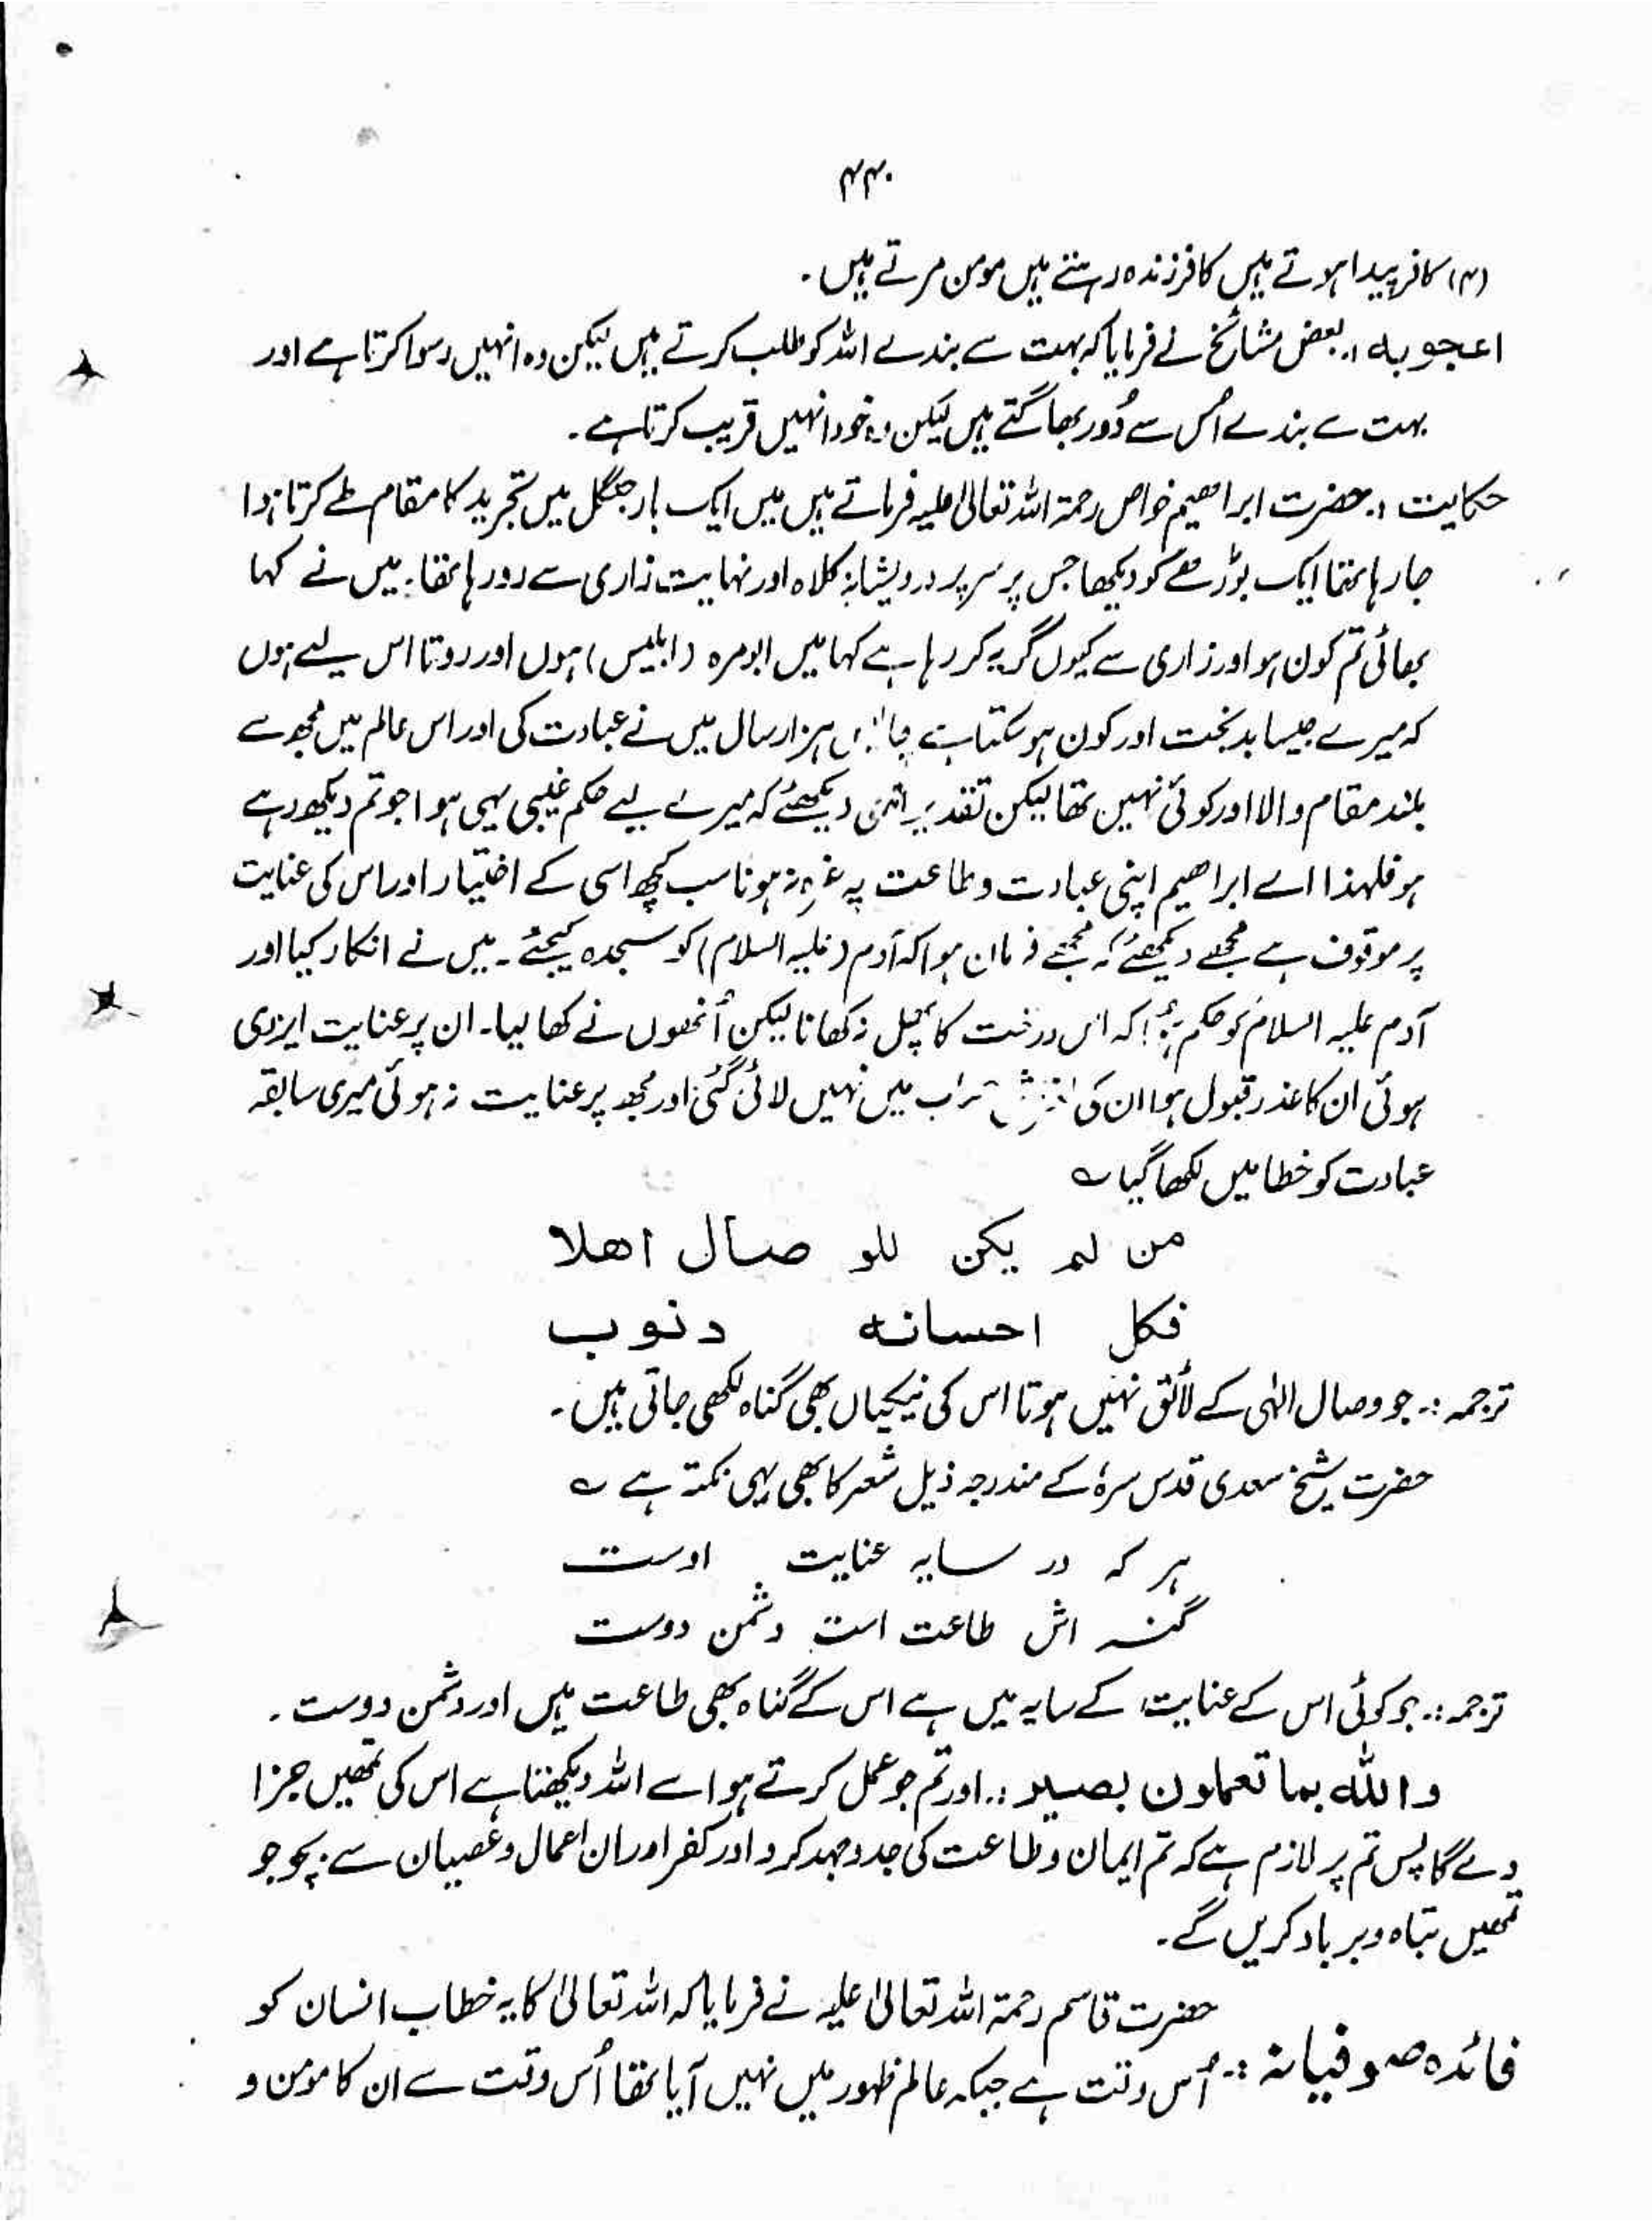 ۴۴۰
(۴) کافر پیدا ہوتے ہیں کافر زندہ رہتے ہیں مومن مرتے ہیں۔
اعجوبہ :۔ بعض مشائخ نے فرمایا کہ بہت سے بندے اللہ کو طلب کرتے ہیں لیکن وہ انہیں رسوا کرتا ہے اور
بہت سے بندے اُس سے دُور بھاگتے ہیں لیکن وہ خود انہیں قریب کرتا ہے۔
حکایت :۔ حضرت ابراھیم خواص رحمۃ اللہ تعالیٰ علیہ فرماتے ہیں میں ایک بار جنگل میں تجرید کا مقام طے کرتا ہوا
جا رہا تھا ایک بوڑھے کو دیکھا جس پر سر پر درویشانہ کلاہ اور نہایت زاری سے رو رہا تھا۔ میں نے کہا
بھائی تم کون ہو اور زاری سے کیوں گریہ کر رہا ہے کہا میں ابومرہ (ابلیس) ہوں اور روتا اس لیے ہوں
کہ میرے جیسا بدبخت اور کون ہو سکتا ہے ہزار سال میں نے عبادت کی اور اس عالم میں مجھ سے
بلند مقام والا اور کوئی نہیں تھا لیکن تقدیر دیکھئے کہ میرے لیے حکم غیبی یہی ہوا جو تم دیکھ رہے
ہو فلہذا اے ابراھیم اپنی عبادت و طاعت پہ غرہ نہ ہونا سب کچھ اسی کے اختیار اور اس کی عنایت
پر موقوف ہے مجھے دیکھئے کہ مجھے فرمان ہوا کہ آدم (علیہ السلام) کو سجدہ کیجئے۔ میں نے انکار کیا اور
آدم علیہ السلام کو حکم ہوا کہ اس درخت کا پھل نہ کھانا لیکن اُنھوں نے کھا لیا۔ ان پر عنایت ایزدی
ہوئی ان کا عذر قبول ہوا ان کی میں نہیں لائی گئی اور مجھ پر عنایت نہ ہوئی میری سابقہ
عبادت کو خطا میں لکھا گیا ؎
من لم یکن للو صال اھلا
فکل احسانہ ذنوب
ترجمہ :۔ جو وصال الٰہی کے لائق نہیں ہوتا اس کی نیکیاں بھی گناہ لکھی جاتی ہیں۔
حضرت شیخ سعدی قدس سرہٗ کے مندرجہ ذیل شعر کا بھی یہی نکتہ ہے ؎
ہر کہ در سایہ عنایت اوست
گنہ اش طاعت است دشمن دوست
ترجمہ :۔ جو کوئی اس کے عنایت کے سایہ میں ہے اس کے گناہ بھی طاعت ہیں اور دشمن دوست۔
واللہ بما تعملون بصیر :۔ اور تم جو عمل کرتے ہو اسے اللہ دیکھتا ہے اس کی تمھیں جزا
دے گا پس تم پر لازم ہے کہ تم ایمان و طاعت کی جدوجہد کرو اور کفر اور ان اعمال و عصیان سے بچو جو
تمھیں تباہ و برباد کریں گے۔
حضرت قاسم رحمۃ اللہ تعالیٰ علیہ نے فرمایا کہ اللہ تعالیٰ کا یہ خطاب انسان کو
فائدہ صوفیانہ :۔ اُس وقت ہے جبکہ عالم ظہور میں نہیں آیا تھا اُس وقت سے ان کا مومن و